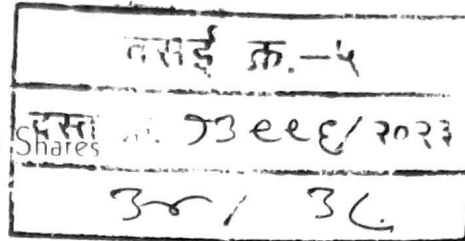 वसई क्र.-५
दस्त क्र. १३९९६/२०२३
Shares
३४/ ३८